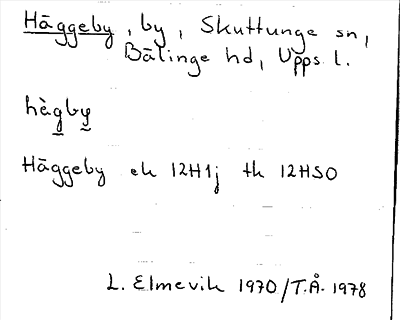 Häggeby, by, Skuttunge sn,
Bälinge hd, Upps. l.
hàgby
Häggeby ek 12H1j tk 12HSO
L. Elmevik 1970/T.Å. 1978